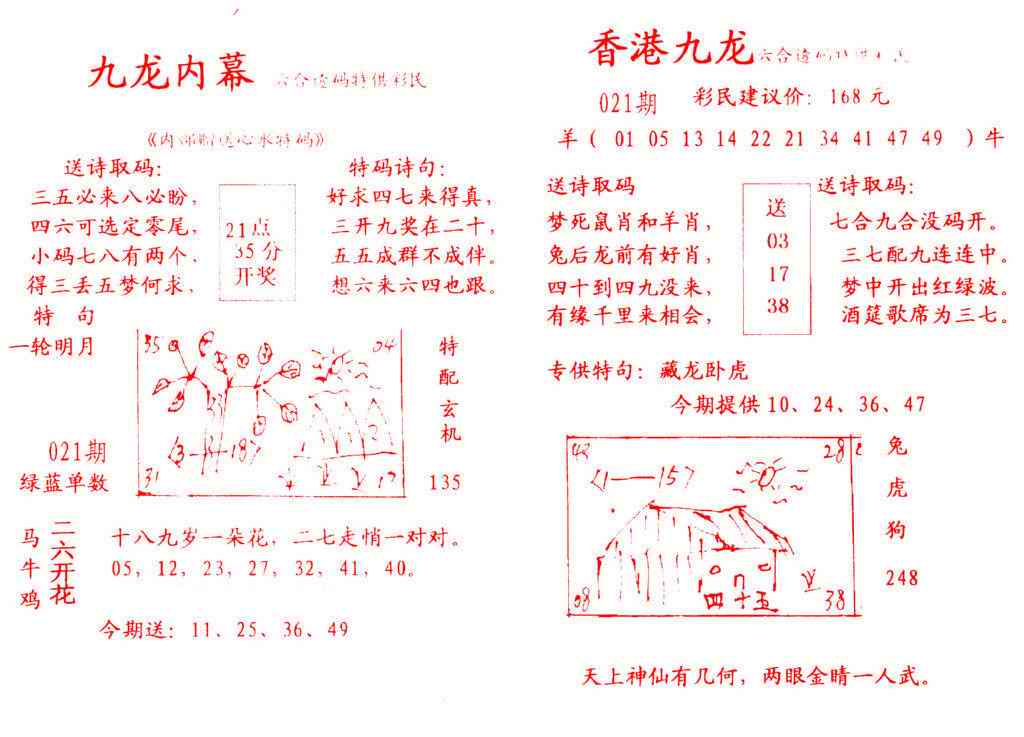 九龙内幕 六合透码特供彩民
《内部赠送心水特码》
送诗取码：
三五必来八必盼，
四六可选定零尾，
小码七八有两个，
得三丢五梦何求，
21点
35分
开奖
特码诗句：
好求四七来得真，
三开九奖在二十，
五五成群不成伴。
想六来六四也跟。
特 句
一轮明月
021期
绿蓝单数
35
04
33
31
17
特
配
玄
机
135
马
牛
鸡
二六开花
十八九岁一朵花，二七走悄一对对。
05，12，23，27，32，41，40。
今期送：11、25、36、49
香港九龙 六合透码特供彩民
021期 彩民建议价：168元
羊（ 01 05 13 14 22 21 34 41 47 49 ）牛
送诗取码
梦死鼠肖和羊肖，
兔后龙前有好肖，
四十到四九没来，
有缘千里来相会，
送
03
17
38
送诗取码：
七合九合没码开。
三七配九连连中。
梦中开出红绿波。
酒筵歌席为三七。
专供特句：藏龙卧虎
今期提供10、24、36、47
28
08
四十五
38
兔
虎
狗
248
天上神仙有几何，两眼金晴一人武。